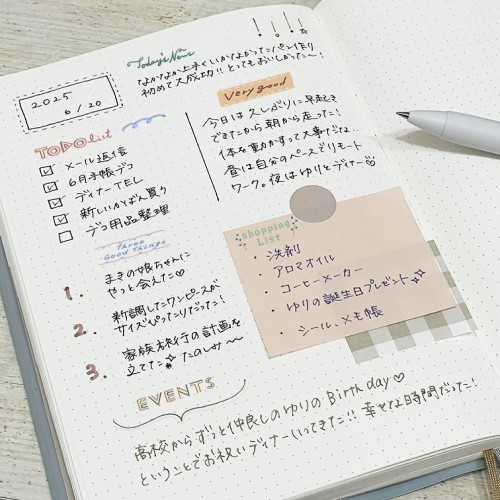 Today's News
なかなか上手くいかなかったパン作り
初めて大成功!! とってもおいしかった〜!
2025
6/20
TODO list
メール返信
6月手帳デコ
ディナーTEL
新しいかばん買う
デコ用品整理
Very good
今日は久しぶりに早起き
できたから朝から走った!
体を動かすって大事だね..
昼は自分のペースでリモート
ワーク。夜はゆりとディナー♡
Three
Good Things
1. まきの娘ちゃんに
やっと会えた♡
2. 新調したワンピースが
サイズぴったりだった!
3. 家族旅行の計画を
立てた たのしみ〜
shopping
List
・洗剤
・アロマオイル
・コーヒーメーカー
・ゆりの誕生日プレゼント
・シール、メモ帳
EVENTS
高校からずっと仲良しのゆりの Birthday♡
ということでお祝いディナーしてきた!! 幸せな時間だった!